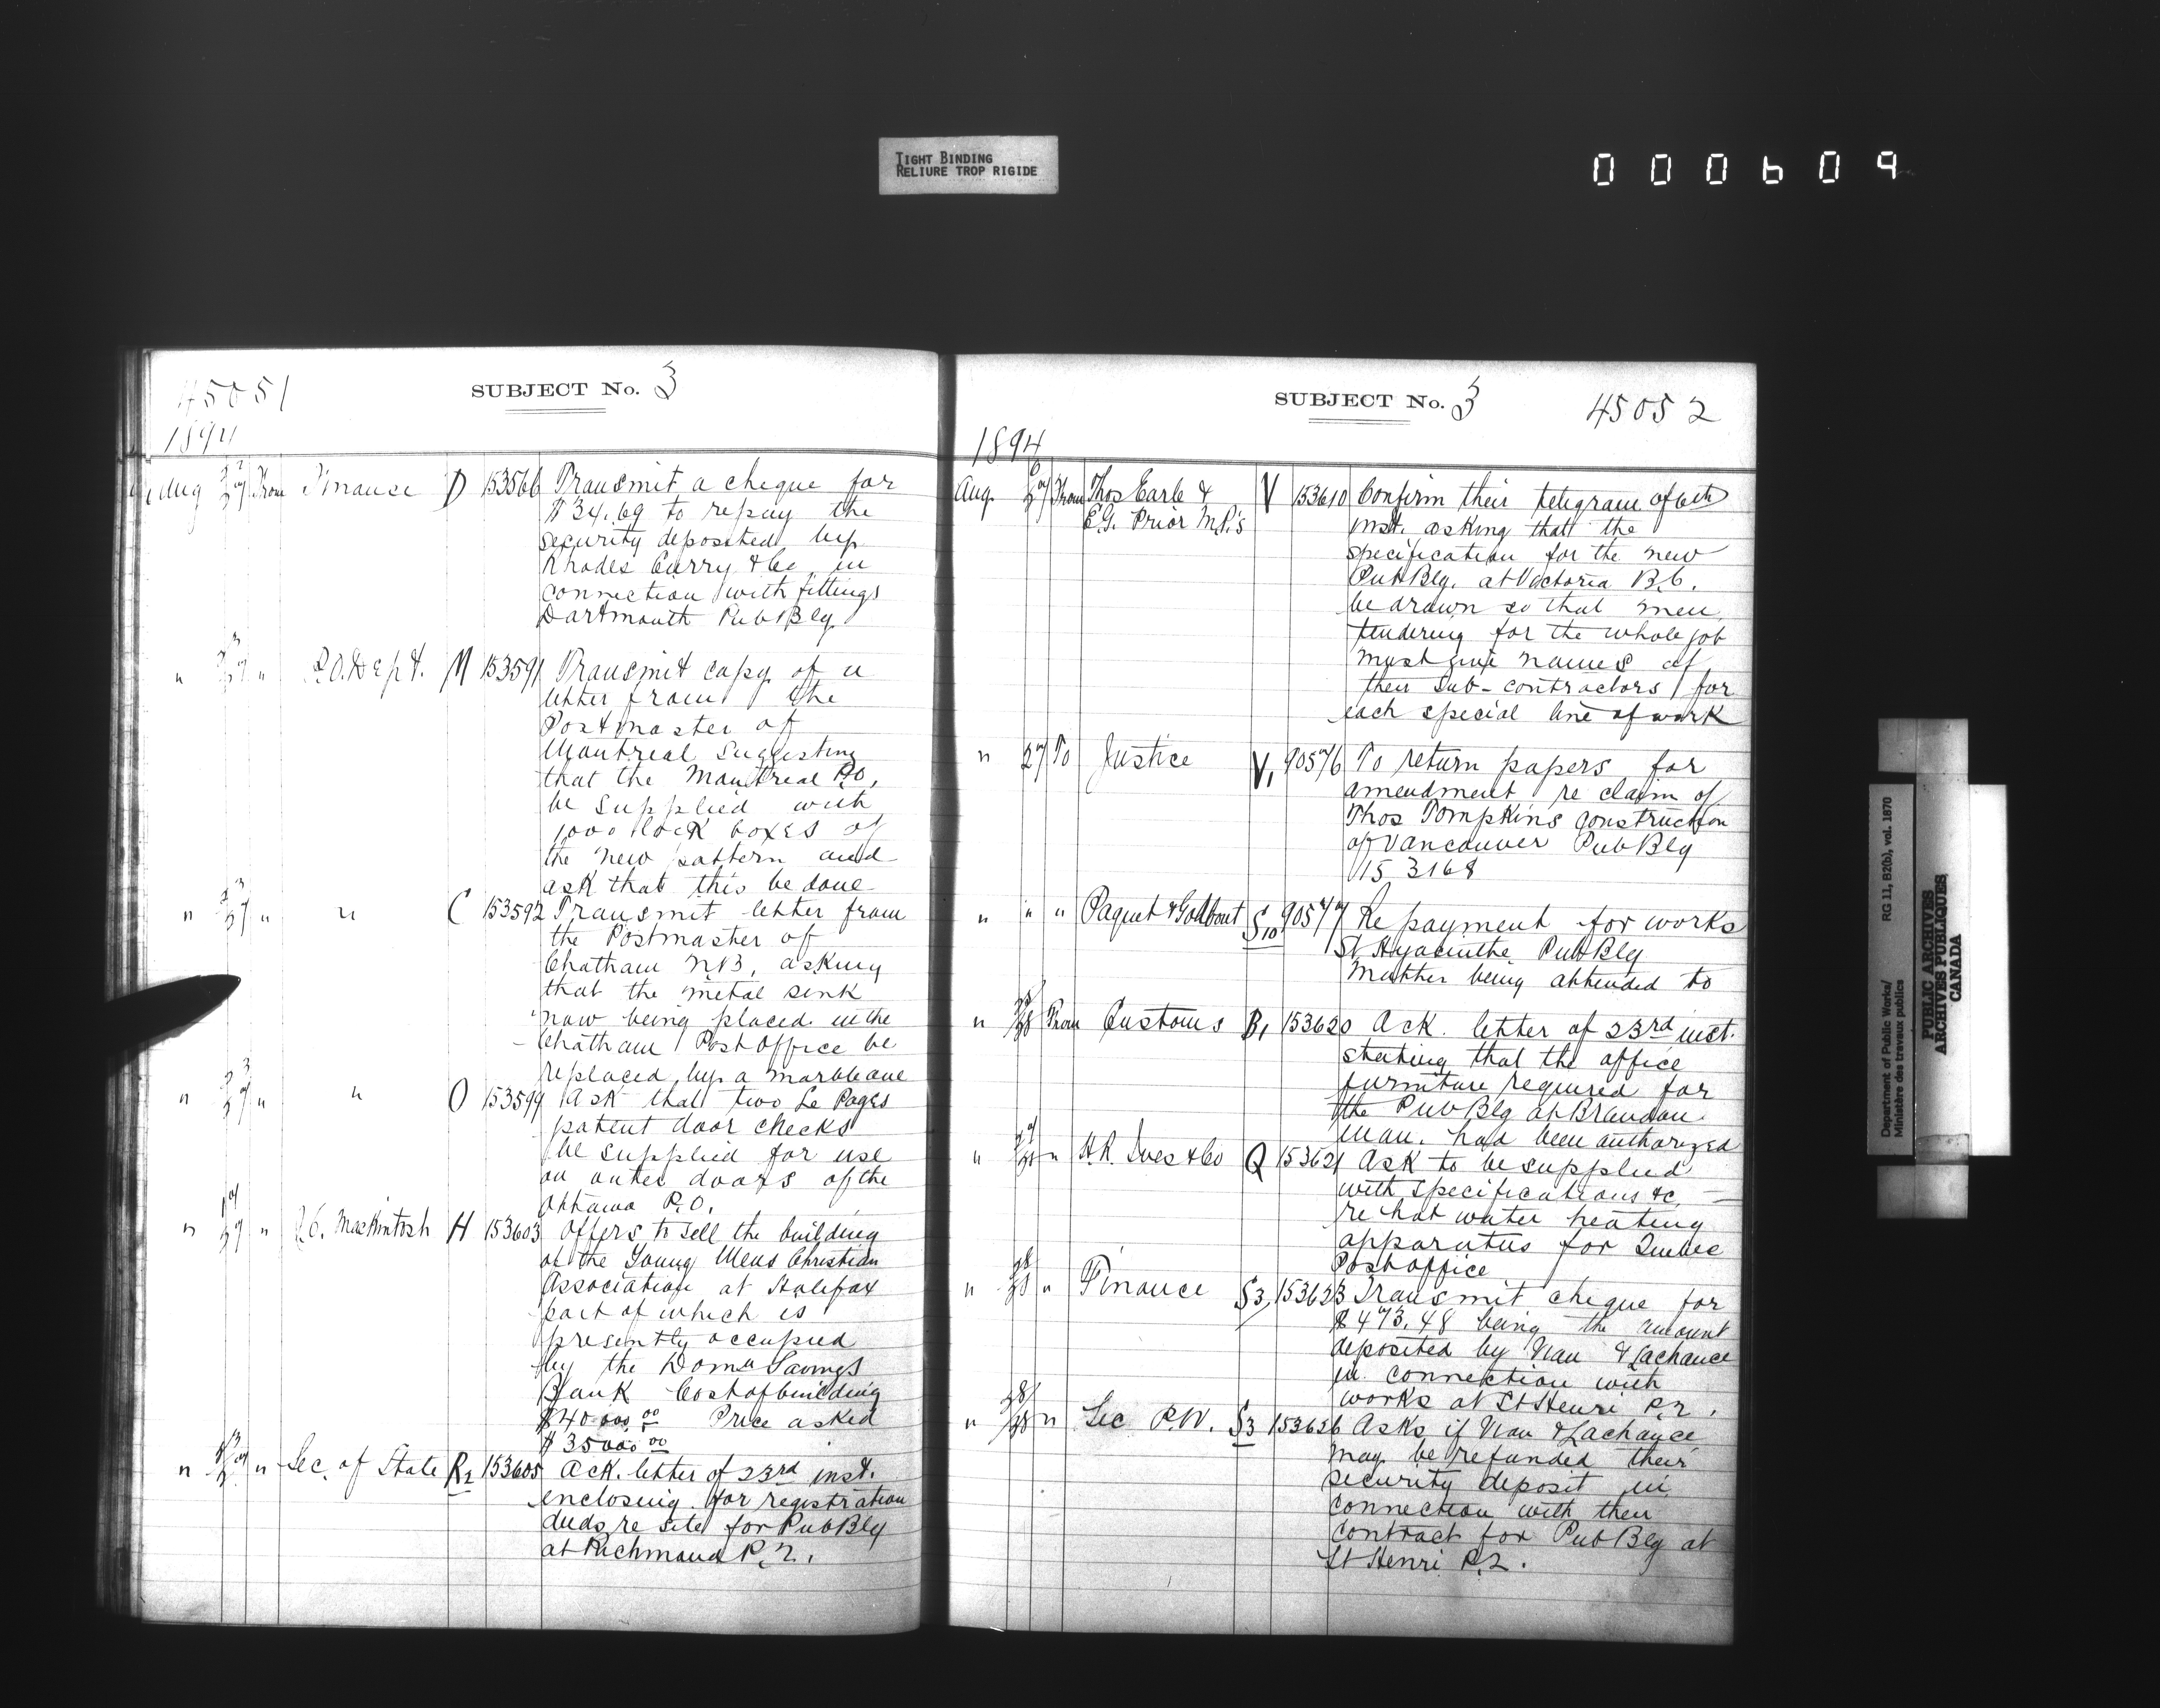 TIGHT BINDING
RELIURE TROP RIGIDE
000609
45051
SUBJECT No. 3
1894
Aug 27 From Finance D 153566 Transmit a cheque for
$34.69 to repay the
security deposited by
Rhodes Curry & Co. in
connection with fittings
Dartmouth Pub Blg
" 27 " P.O. Dept. M 153591 Transmit copy of a
letter from the
Postmaster of
Montreal suggesting
that the Montreal P.O.
be supplied with
1000 lock boxes of
the new pattern and
ask that this be done
" 27 " " C 153592 Transmit letter from
the Postmaster of
Chatham N.B, asking
that the metal sink
now being placed in the
Chatham Post Office be
replaced by a marble one
" 27 " " O 153599 Ask that two Le Pages
patent door checks
be supplied for use
on outer doors of the
Ottawa P.O.
" 27 " MacKintosh H 153603 Offers to sell the building
of the Young Mens Christian
Association at Halifax
part of which is
presently occupied
by the Domn Savings
Bank Cost of building
$40000.00 Price asked
$35000.00
" 27 " Sec. of State R2 153605 Ack. letter of 23rd inst.
enclosing for registration
deeds re site for Pub Blg
at Richmond P.2.
SUBJECT No. 3 45052
1894
Aug. 27 From Thos Earle & V 153610 Confirm their telegram of 6th
E.G. Prior M.P.'s inst. asking that the
specification for the new
Pub Blg. at Victoria B.C.
be drawn so that men
tendering for the whole job
must give names of
their sub-contractors for
each special line of work
" 27 To Justice V1 90576 To return papers for
amendment re claim of
Thos Tompkins construction
of Vancouver Pub Blg
153168
" " " Paquet & Godbout S10 90577 Re payment for works
St Hyacinthe Pub Blg
Matter being attended to
" 28 From Customs B1 153620 Ack. letter of 23rd inst.
stating that the office
furniture required for
the Pub Blg at Brandon
Man. had been authorized
" 28 " H.R. Ives & Co Q 153621 Ask to be supplied
with specifications &c,
re hot water heating
apparatus for Quebec
Post office
" 28 " Finance S3 153623 Transmit cheque for
$473.48 being the amount
deposited by Nau & Lachance
in connection with
works at St Henri P.2.
" 28 " Sec P.W. S3 153626 Asks if Nau & Lachance
may be refunded their
security deposit in
connection with their
contract for Pub Blg at
St Henri P.2.
Department of Public Works/ RG 11, B2(b), vol. 1870
Ministère des travaux publics
PUBLIC ARCHIVES
ARCHIVES PUBLIQUES
CANADA